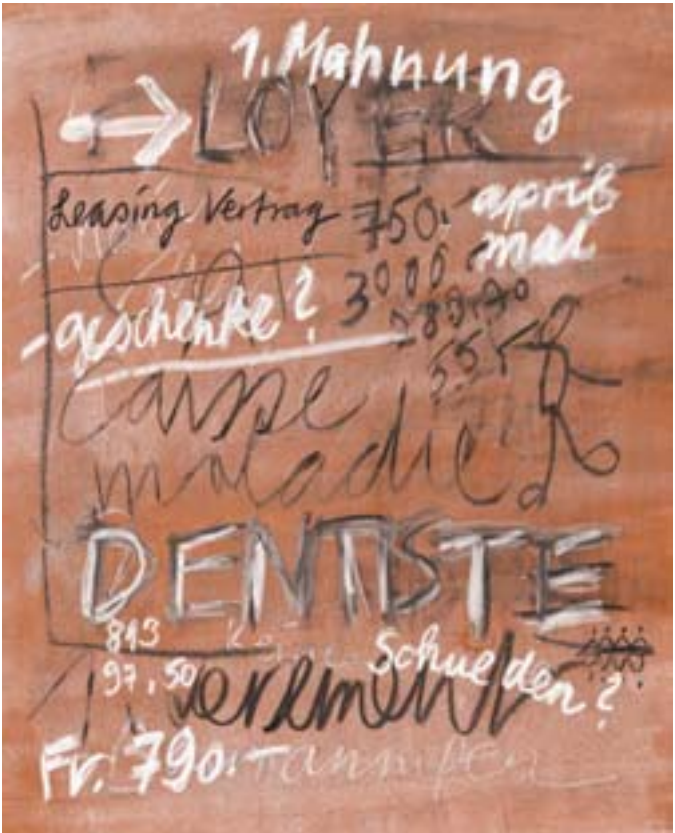 1. Mahnung
LOYER
Leasing Vertrag 750.-
april
mai
3000
geschenke?
caisse
maladie
DENTISTE
813
97,50
Schulden?
Fr. 790.-